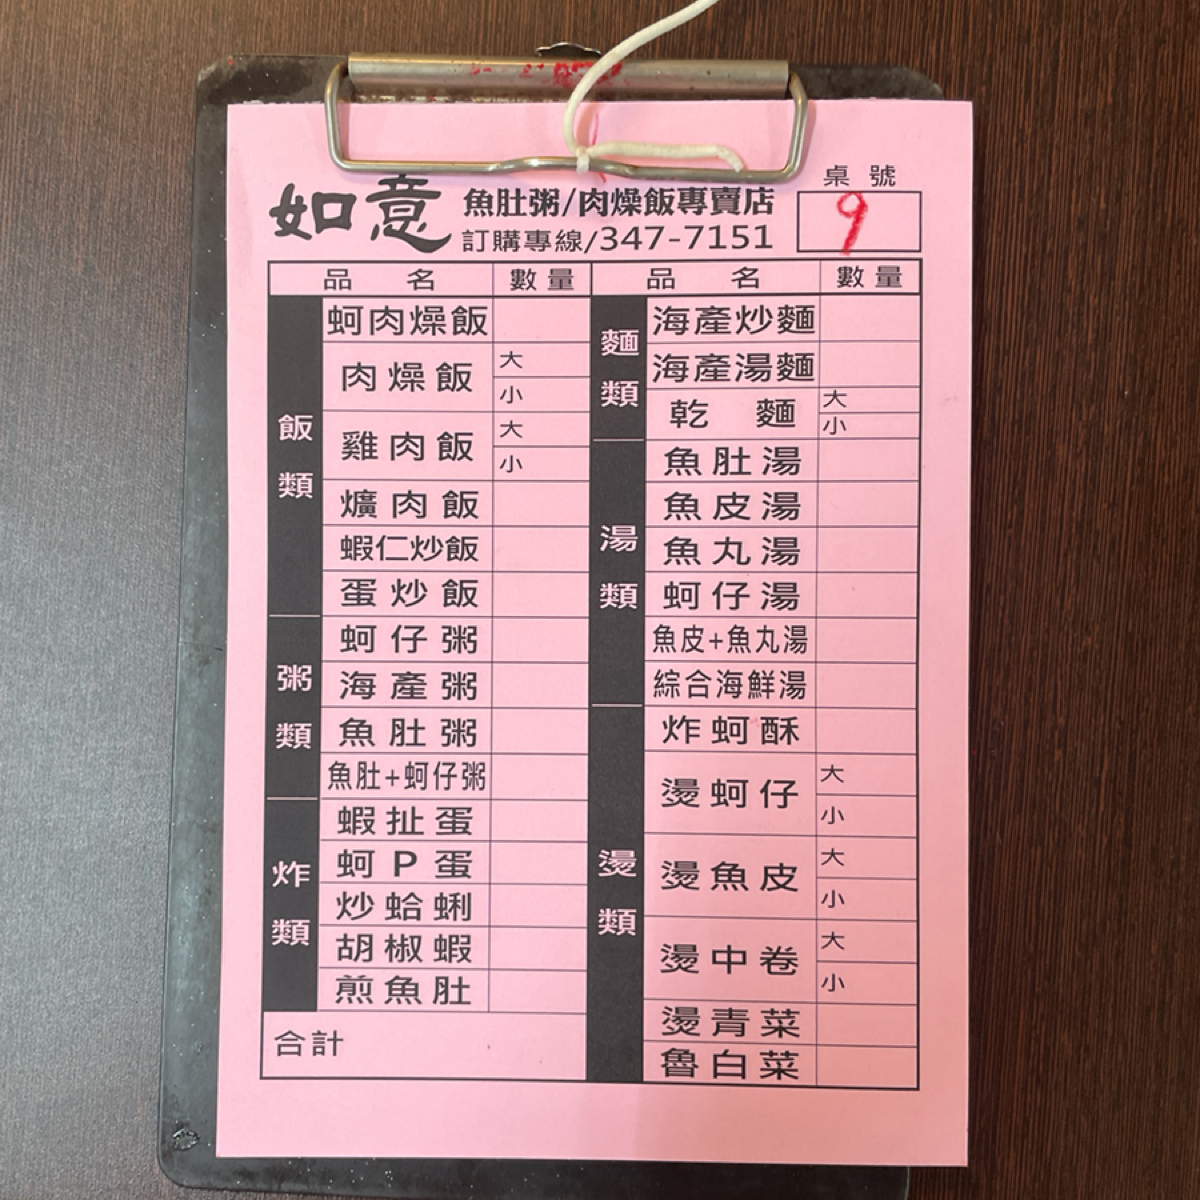 如意
魚肚粥/肉燥飯專賣店
訂購專線/347-7151
桌號
9
品名 數量
飯類
蚵肉燥飯
肉燥飯 大
小
雞肉飯 大
小
爌肉飯
蝦仁炒飯
蛋炒飯
粥類
蚵仔粥
海產粥
魚肚粥
魚肚+蚵仔粥
炸類
蝦扯蛋
蚵P蛋
炒蛤蜊
胡椒蝦
煎魚肚
合計
品名 數量
麵類
海產炒麵
海產湯麵
乾麵 大
小
湯類
魚肚湯
魚皮湯
魚丸湯
蚵仔湯
魚皮+魚丸湯
綜合海鮮湯
燙類
炸蚵酥
燙蚵仔 大
小
燙魚皮 大
小
燙中卷 大
小
燙青菜
魯白菜